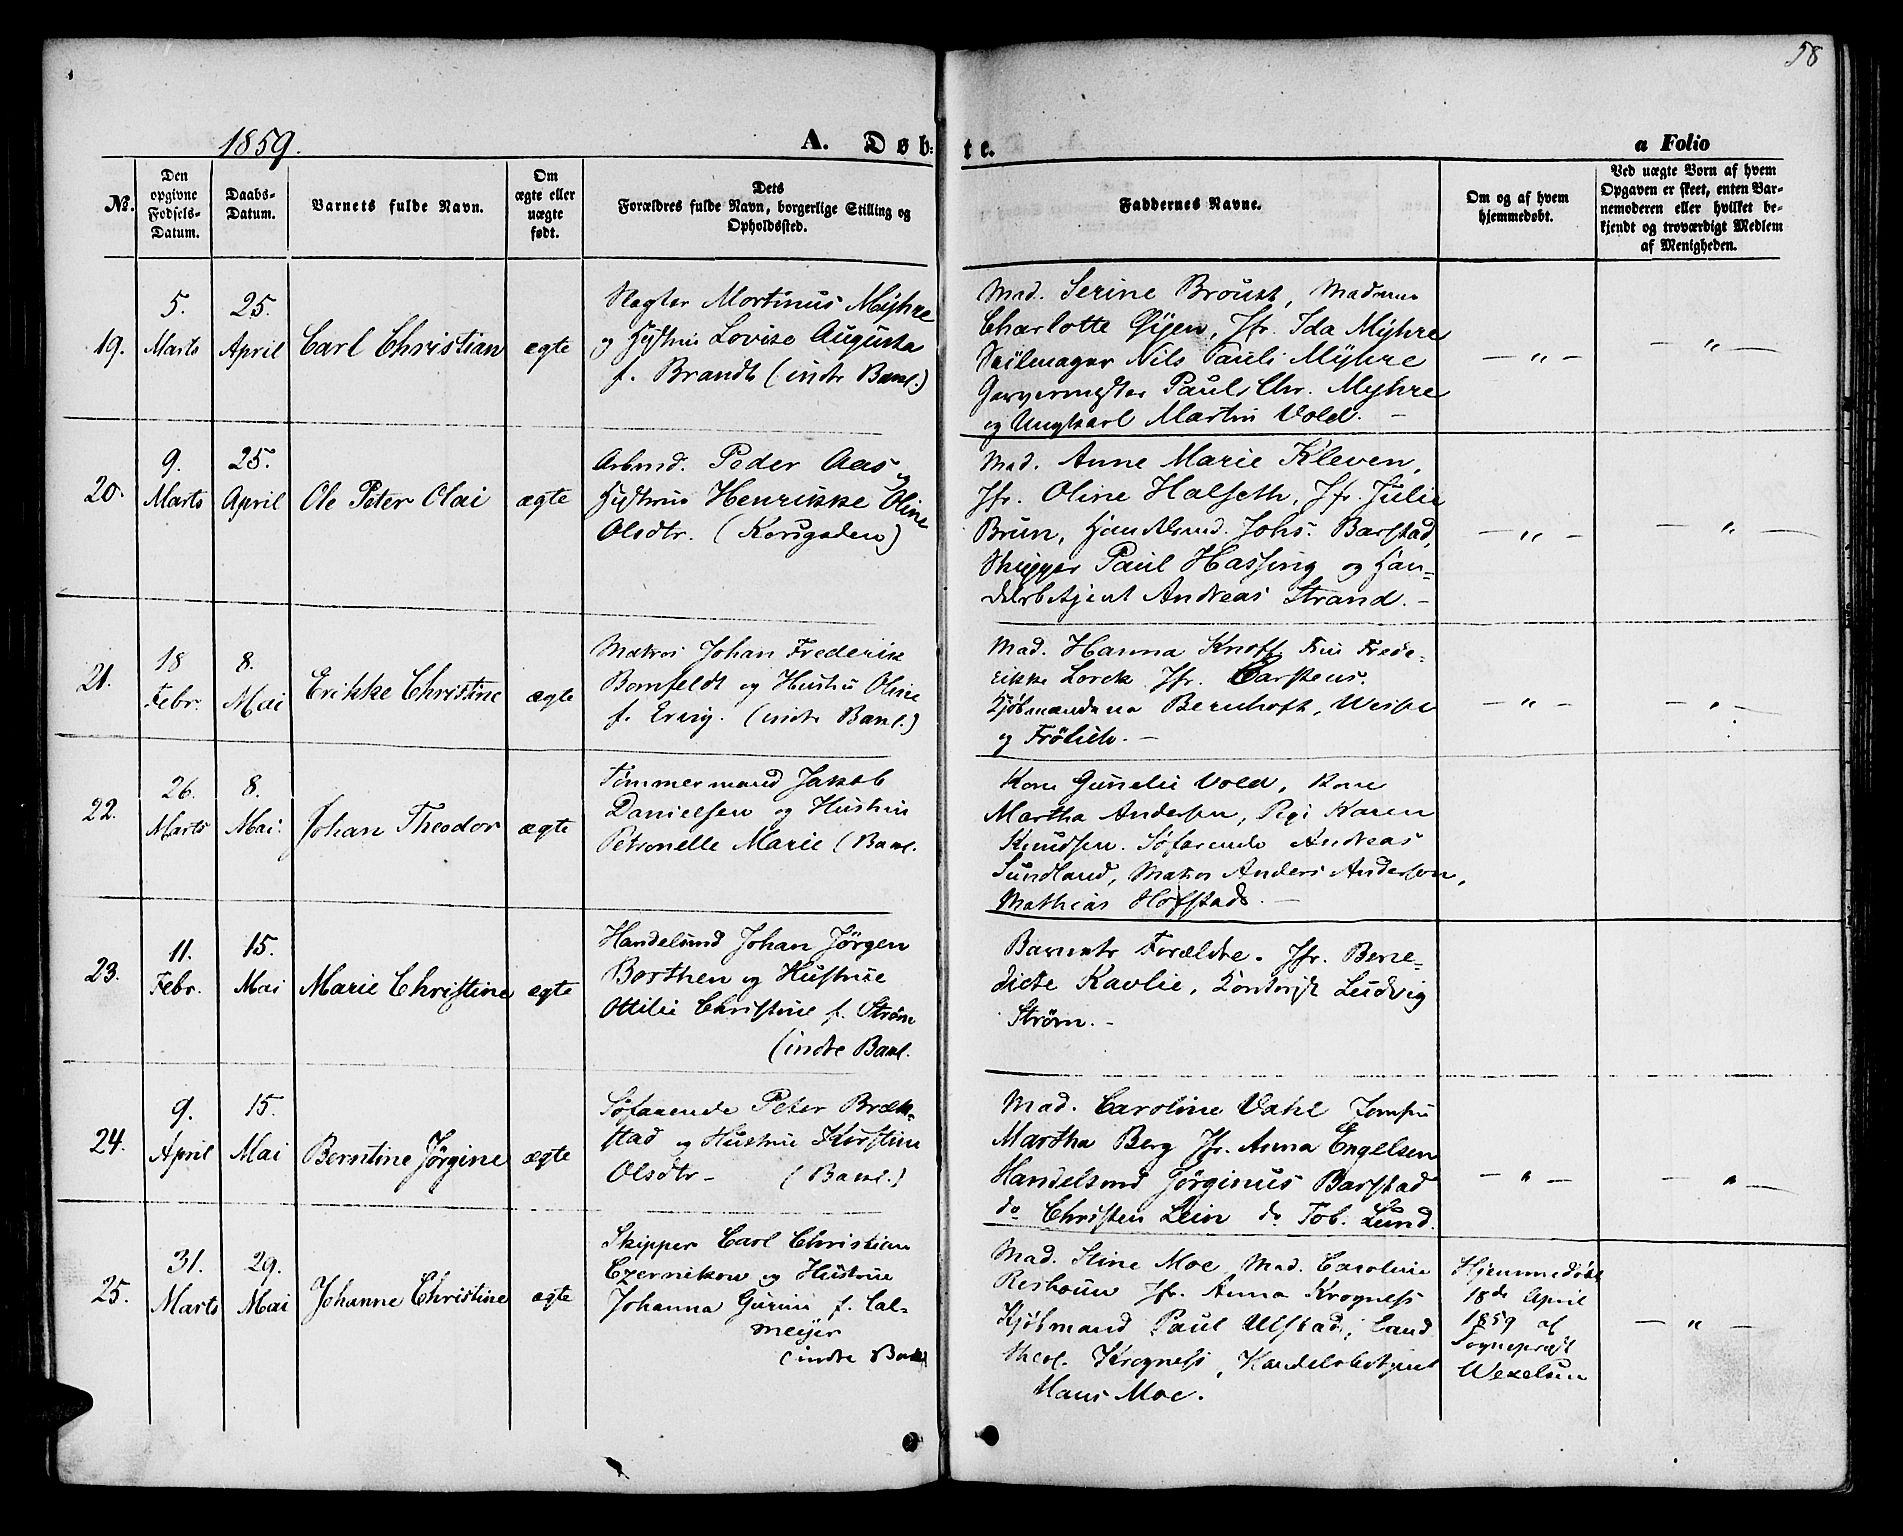 58
1859.
A. Døb-
te.
a Folio
No.
Den opgivne Fødsels-Datum.
Daabs-Datum.
Barnets fulde Navn.
Om ægte eller uægte født.
Dets Forældres fulde Navn, borgerlige Stilling og Opholdssted.
Faddernes Navne.
Om og af hvem hjemmedøbt.
Ved uægte Børn af hvem Opgaven er skeet, enten Barnemoderen eller hvilket bekjendt og troværdigt Medlem af Menigheden.
19.
5. Marts
25. April
Carl Christian
ægte
Slagter Mortinus Myhre
og Hustru Lovise Augusta
f. Brandt (indr Bakl.)
Mad. Serine Broust, Madame
Charlotte Øyen, Jfr. Ida Myhre
Seilmager Nils Pauls Myhre
Garvermester Paul Chr. Myhre
og Ungkarl Martin Vold. -
- " -
- " -
20.
9. Marts
25. April
Ole Peter Olai
ægte
Arbmd. Peder Aas og
Hustrue Henrikke Oline
Olsdtr. (Korsgaden)
Mad. Anne Marie Kleven,
Jfr. Oline Halseth, Jfr. Julie
Brun, Handlsmd. Johs. Barstad,
Skipper Paul Hassing og Han-
delsbetjent Andreas Strand. -
- " -
- " -
21.
18 Febr.
8. Mai
Erikke Christine
ægte
Matros Johan Frederik
Bomfeldt og Hustru Oline
f. Ervig. (indr Bakl.)
Mad. Hanna Knoff Fru Frede-
rikke Lorck Jfr. Carstens.
Kjøbmændene Bernhoft, Weise
og Frölich. -
- " -
- " -
22.
26. Marts
8. Mai.
Johan Theodor
ægte
Tømmermand Jakob
Danielsen og Hustru
Petronelle Marie (Bakl.
Kone Gunelie Vold, Kone
Martha Andersen, Pige Karen
Knudsen. Søfarende Andreas
Sundland, Matros Anders Andersen,
Mathias Hofstad. -
23.
11. Febr.
15. Mai
Marie Christine
ægte
Handelsmd Johan Jørgen
Borthen og Hustrue
Ottilie Christine f. Strøm
(indre Bakl.
Barnets Forældre. Jfr. Bene-
dicte Kavlie, Kontorist Ludvig
Strøm. -
24.
9. April
15. Mai
Berntine Jørgine
ægte
Søfarende Peter Bræk-
stad og Hustrue Kirstine
Olsdtr - (Bakl.)
Mad. Caroline Vahl Jomfru
Martha Berg Jfr. Anna Engelsen
Handelsmd Jørginus Barstad
do Christen Lein do Tob. Lund.
- " -
- " -
25.
31. Marts
29. Mai
Johanne Christine
ægte
Skipper Carl Christian
Czernikow og Hustrue
Johanna Gurine f. Cal-
meijer
(indre Bakl
Mad. Stine Moe, Mad. Caroline
Reshoun Jfr. Anna Krogness
Kjøbmand Paul Ulstad, Cand
theol. Krogness, Handelsbetjent
Hans Moe.
Hjemmedøbt
18de April
1859 af
Sognepræst
Wexelsen
- " -